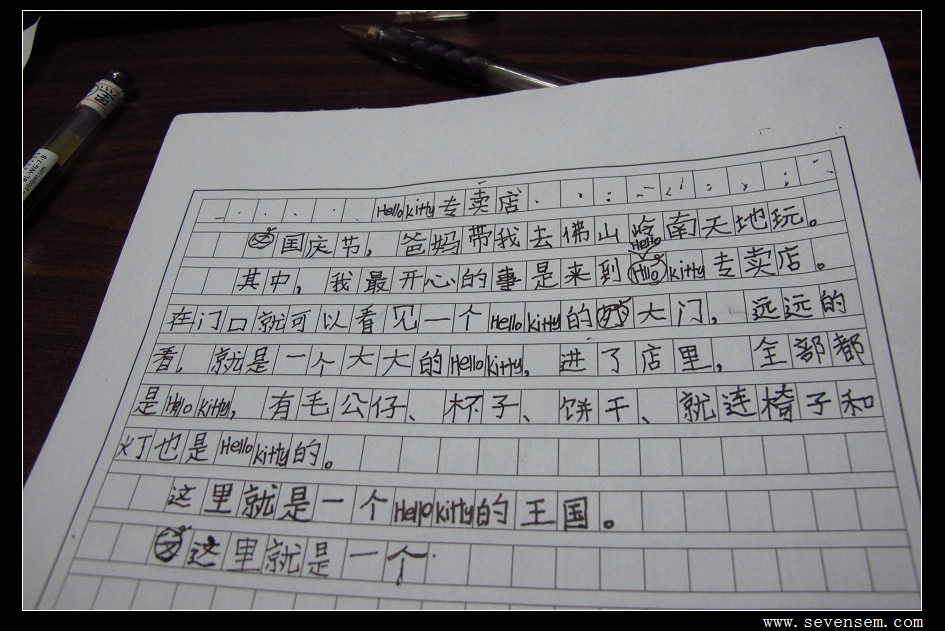 Hello kitty专卖店
国庆节，爸妈带我去佛山岭南天地玩。
其中，我最开心的事是来到Hello kitty专卖店。
在门口就可以看见一个Hello kitty的大门，远远的
看，就是一个大大的Hello kitty，进了店里，全部都
是Hello kitty，有毛公仔、杯子、饼干、就连椅子和
灯也是Hello kitty的。
这里就是一个Hello kitty的王国。
这里就是一个
www.sevensem.com